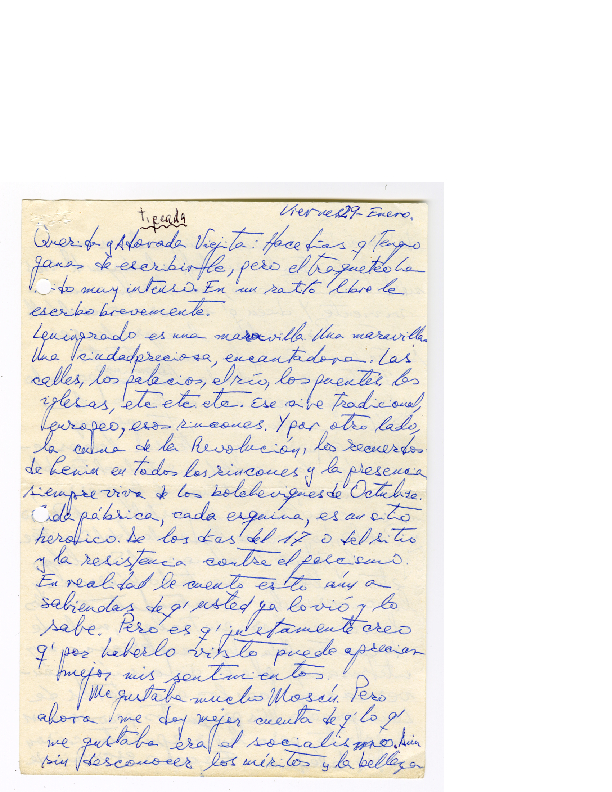 tipeada
Viernes 29 - Enero.
Querida y Adorada Viejita: Hace días q' Tengo
ganas de escribirle, pero el traqueteo ha
do muy intenso. En un ratito libre le
escribo brevemente.
Leningrado es una maravilla. Una maravilla.
Una ciudad preciosa, encantadora. Las
calles, los palacios, el río, los puentes las
iglesias, etc etc etc. Ese aire Tradicional,
europeo, esos rincones. Y por otro lado,
la cuna de la Revolución, los recuerdos
de Lenin en todos los rincones y la presencia
siempre viva de los bolcheviques de Octubre.
ada fábrica, cada esquina, es un sitio
heroico. De los días del 17 o del sitio
y la resistencia contra el fascismo.
En realidad le cuento esto aún a
sabiendas de q' usted ya lo vió y lo
sabe. Pero es q' justamente creo
q' por haberlo visto puede apreciar
mejor mis sentimientos.
Me gustaba mucho Moscú. Pero
ahora me doy mejor cuenta de q' lo q'
me gustaba era el socialismo.
sin desconocer los méritos y la belleza